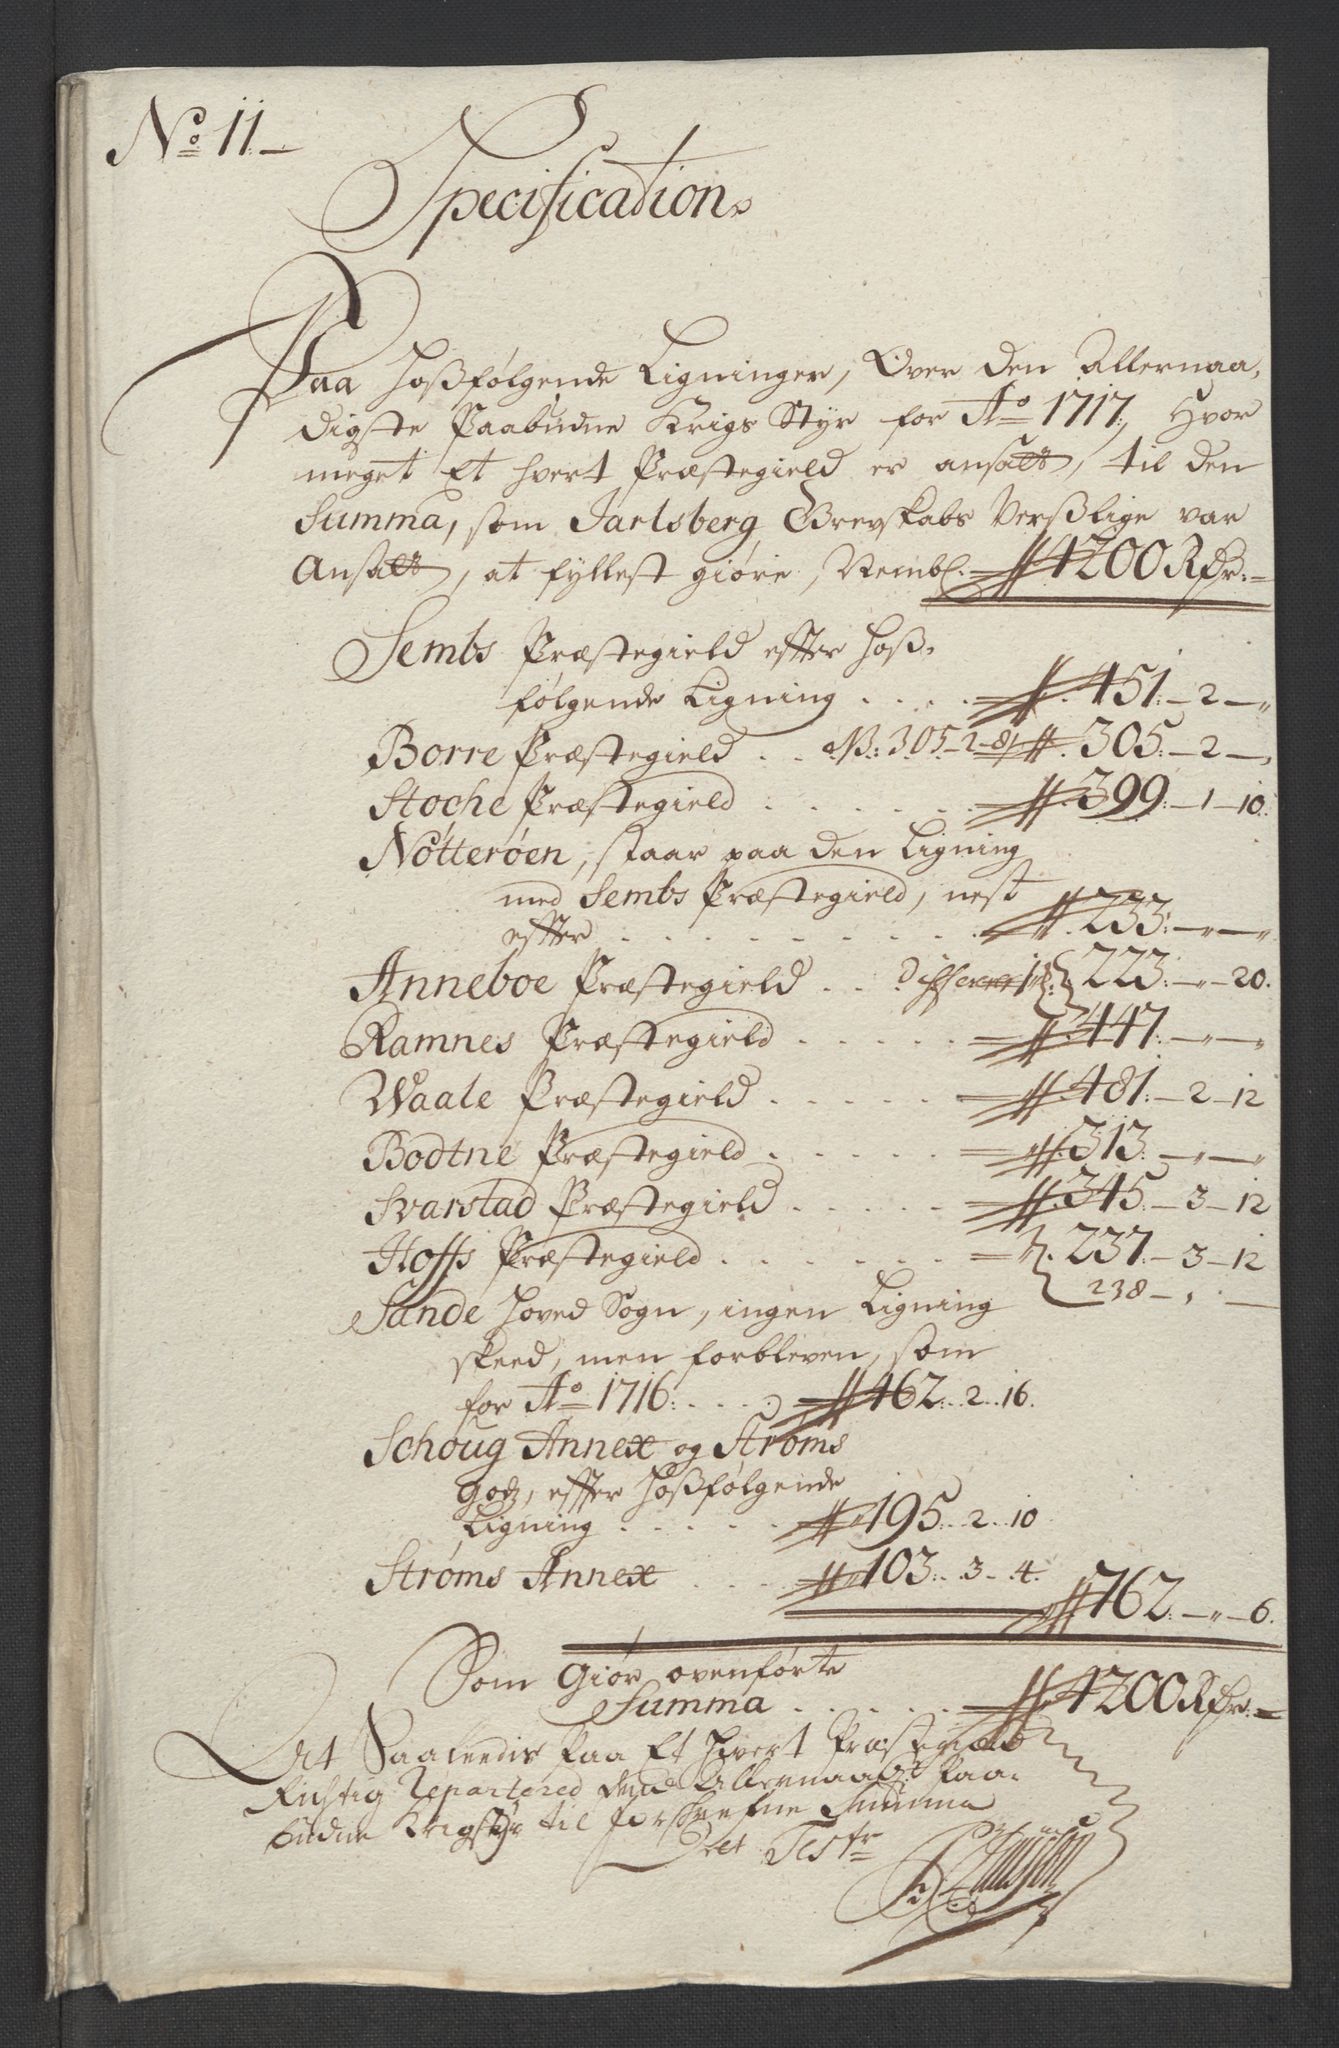 No 11.
Specification
Paa Hoßfølgende Ligninger, Over den Allernaa,
digste Paabudne Krigs Styr for Ao 1717, Hvor
meget Et hvert Præstegield er ansatt, til den
Summa, som Jarlsberg Grevskabs Verßlige var
Ansatt, at fyllest giøre, Nembl. 4200 Rdr:
Sembs Præstegield effter Hoß,
følgende Ligning . . . . 451. 2 "
Borre Præstegield . . NB: 305-2-8/ 305. 2
Stoche Præstegield . . . . . 399. 1 10.
Nøtterøen, staar paa den Ligning
med Sembs Præstegield, nest
effter . . . . . . . . . . 233: " "
Anneboe Præstegield . . 223: " 20.
Ramnes Præstegield . . . . . 447. " "
Waale Præstegield . . . . . 481. 2 12
Bodtne Præstegield . . . . . 313: " "
Svarstad Præstegield . . . . . 345. 3 12
Hoffs Præstegield . . . . . . 237. 3 12
238
Sande Hoved Sogn, ingen Ligning
skeed, men forbleven, som
for Ao 1716: . . . 462. 2. 16.
Schoug Annex og Strøms
Godz, effter Hoßfølgende
Ligning . . . . . 195. 2. 10
Strøms Annex . . . 103. 3. 4.
762. " 6.
Som Giør ovenførte
Summa . . . . . 4200 Rdr:
Det Saaleedis paa Et hvert Præstegield
Rigtig Repartered Allernaadgt. Paa,
budne Krigstyr til forskrefne Summa
Det Testr